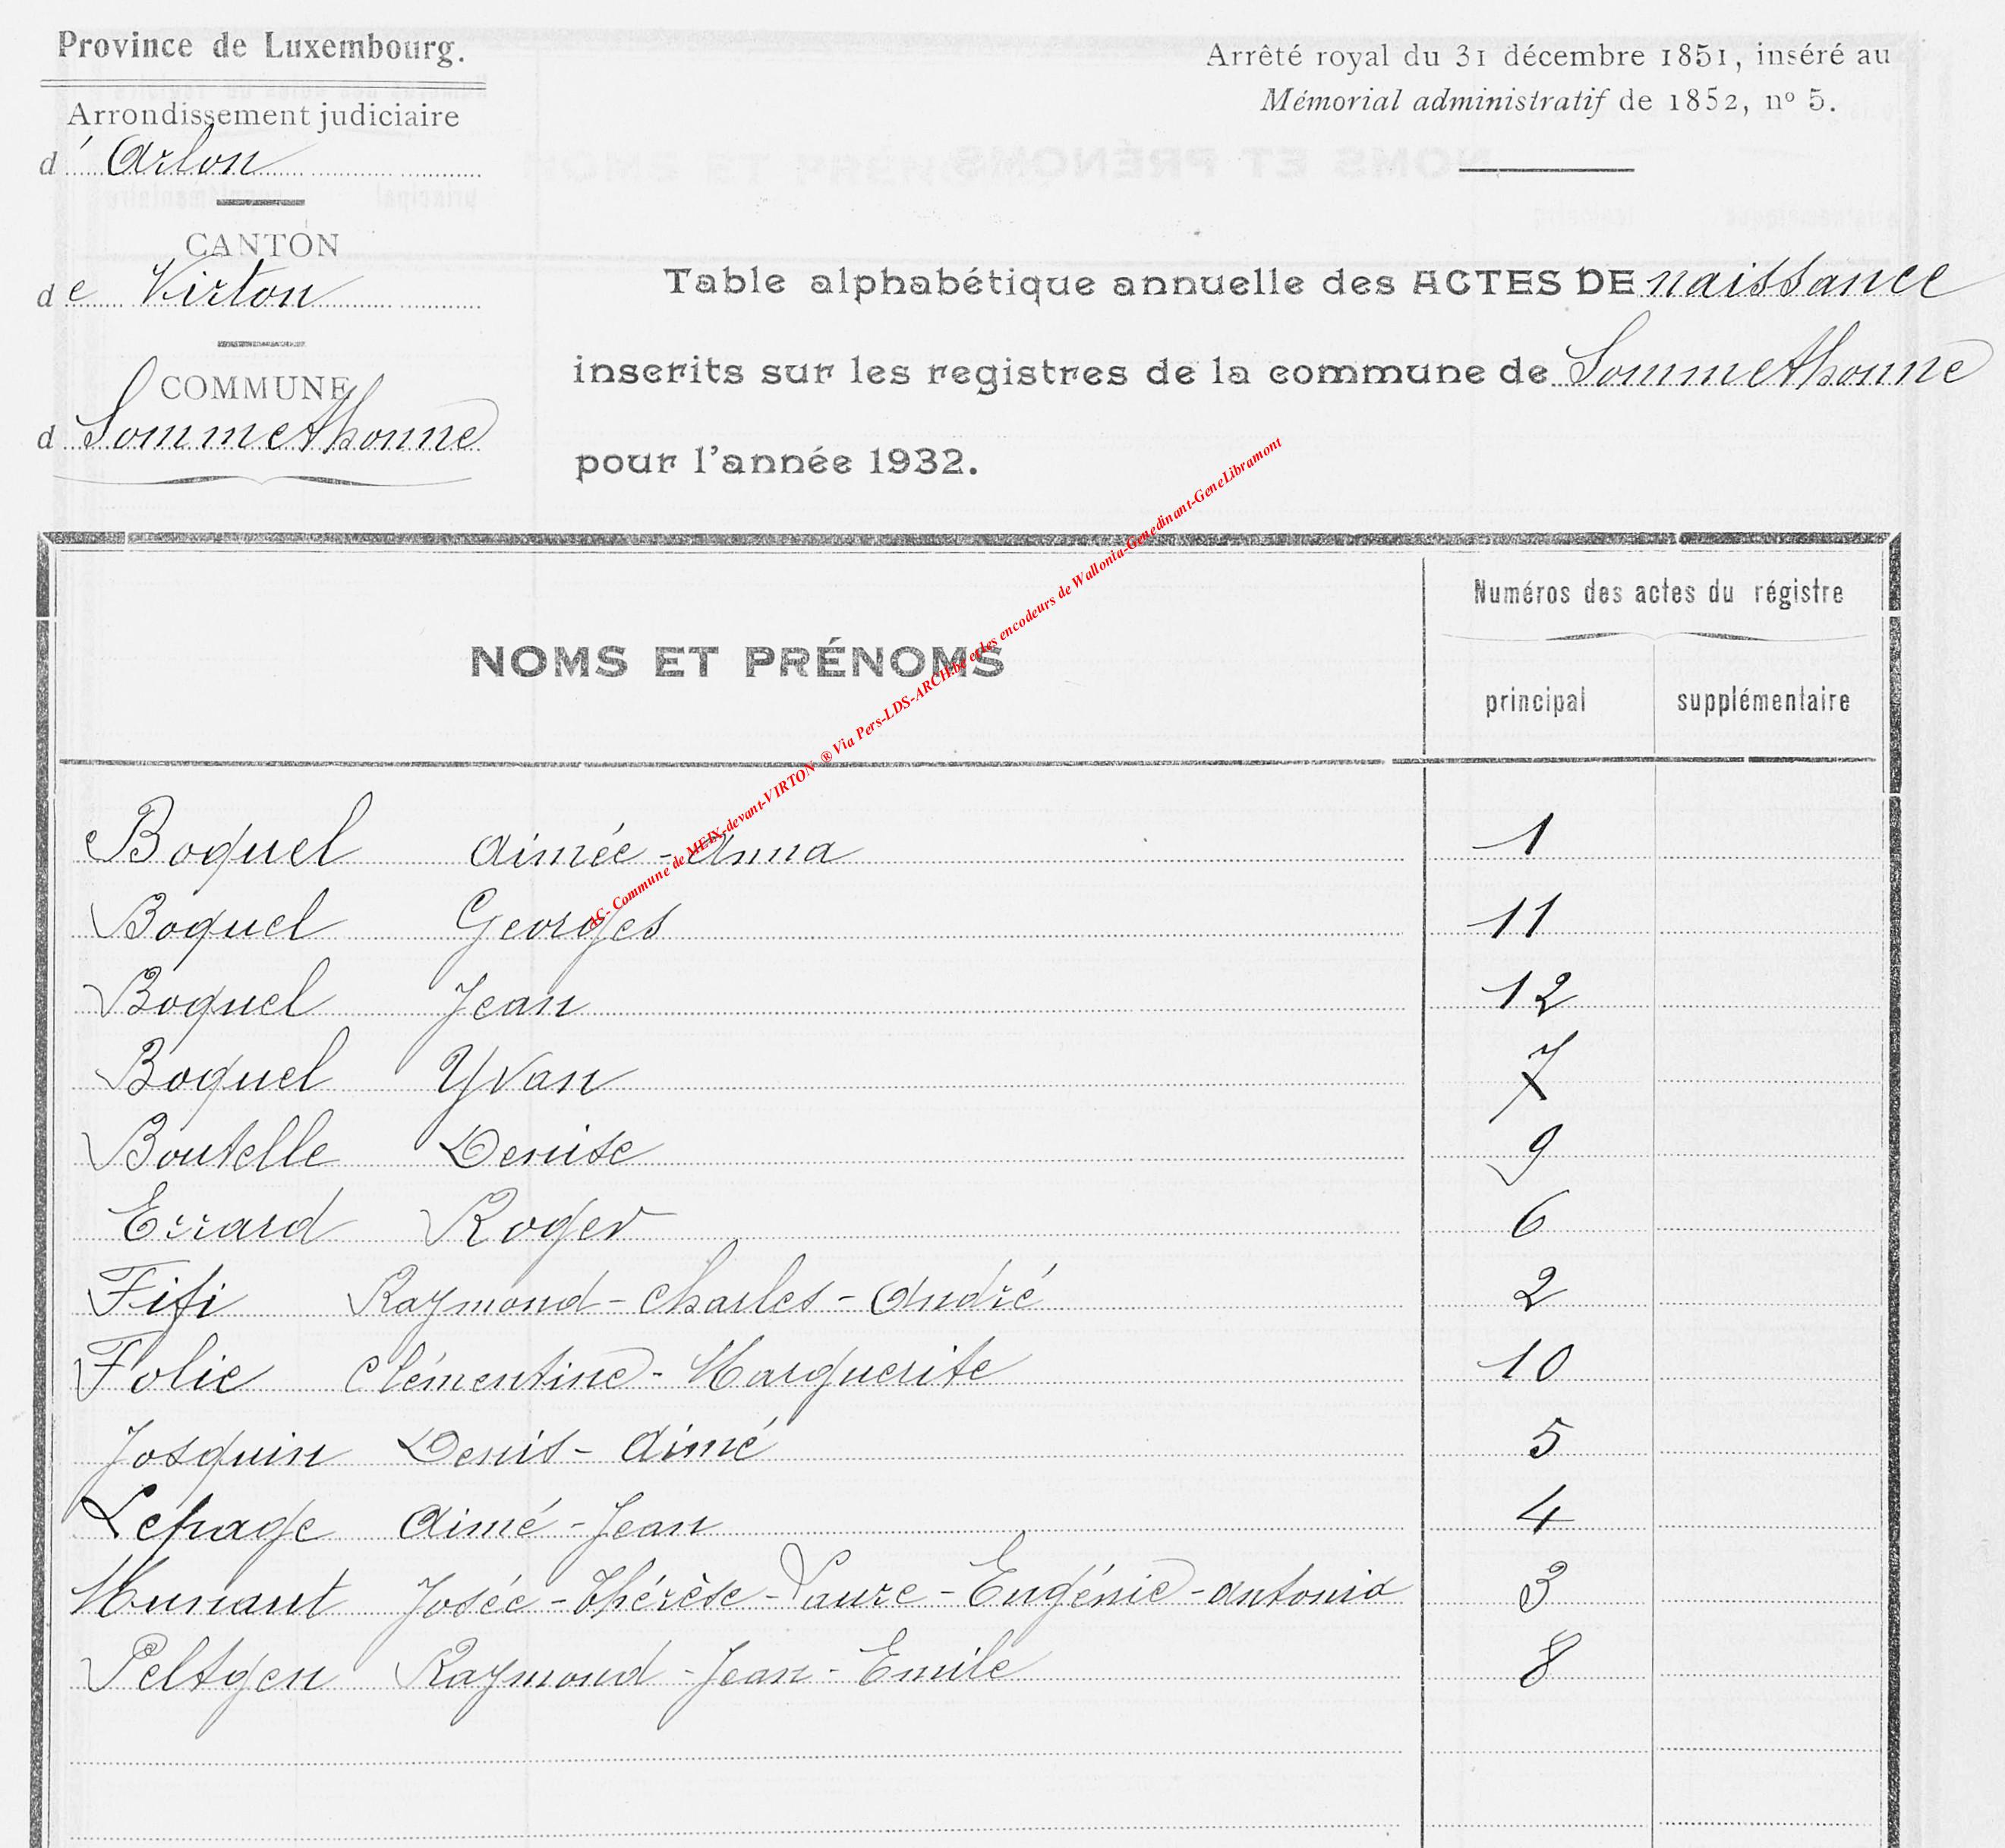 Province de Luxembourg.
Arrondissement judiciaire
d' Arlon
CANTON
de Virton
COMMUNE
d Sommethonne
Arrêté royal du 31 décembre 1851, inséré au
Mémorial administratif de 1852, nº 5.
Table alphabétique annuelle des ACTES DE naissance
inscrits sur les registres de la commune de Sommethonne
pour l'année 1932.
NOMS ET PRÉNOMS
Numéros des actes du régistre
principal supplémentaire
AC- Commune de MEIX-devant-VIRTON ® Via Pers-LDS-ARCH.be et les encodeurs de Wallonia-Genedinant-GeneLibramont
Boquel Aimée-Anna 1
Boquel Georges 11
Boquel Jean 12
Boquel Yvan 7
Boutelle Denise 9
Errard Roger 6
Fifi Raymond-Charles-André 2
Folie Clémentine-Marguerite 10
Josquin Denis-Aimé 5
Lepage Aimé-Jean 4
Munaut Josée-Thérèse-Laure-Eugénie-Antonia 3
Peltgen Raymond-Jean-Emile 8